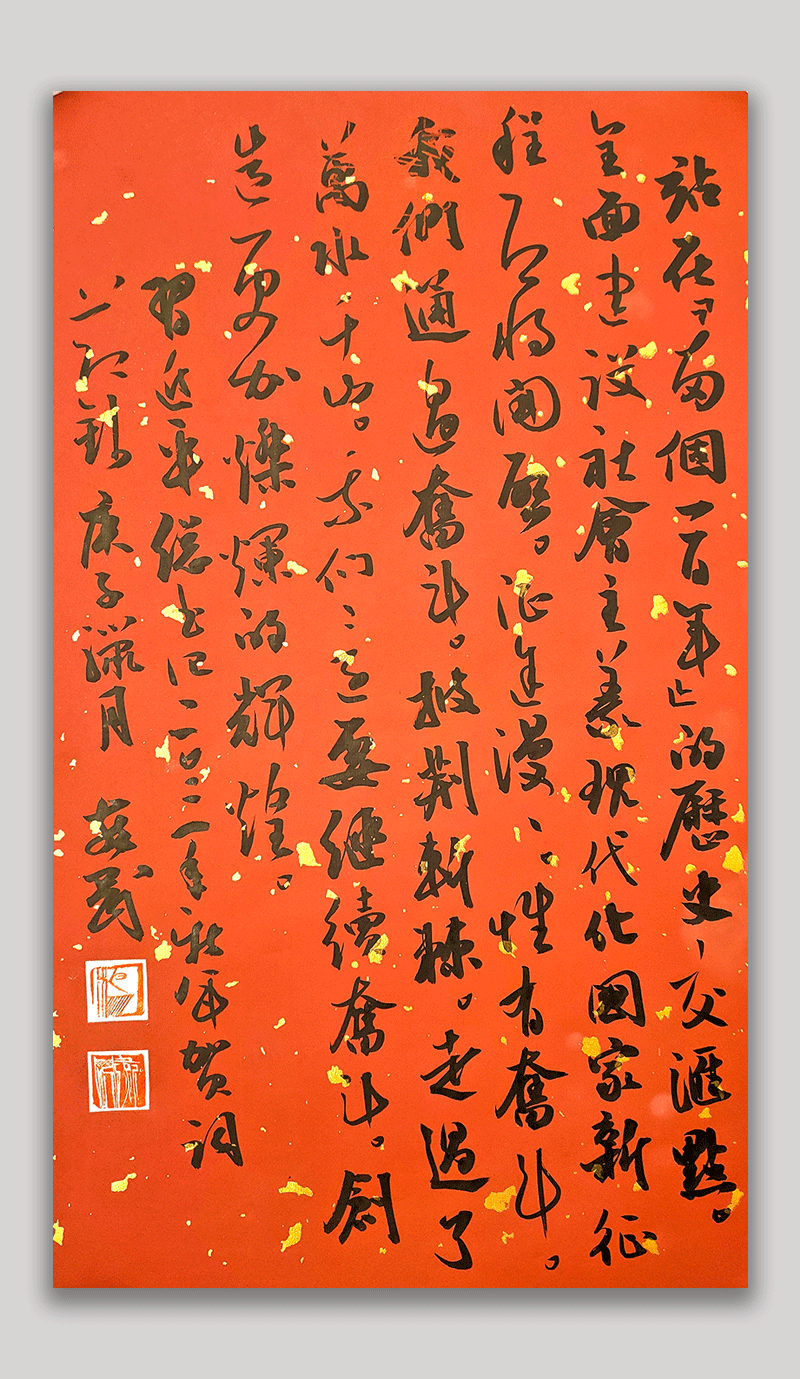 站在「两個一百年」的歷史、交滙點。
全面建設社會主義現代化國家新征
程即將開啟。征途漫〻。惟有奮斗。
我們通過奮斗。披荆斬棘。走過了
萬水千山。我们還要繼續奮斗。創
造更加燦爛的輝煌。
習近平總書記二〇二一年新年賀詞
庚子臘月